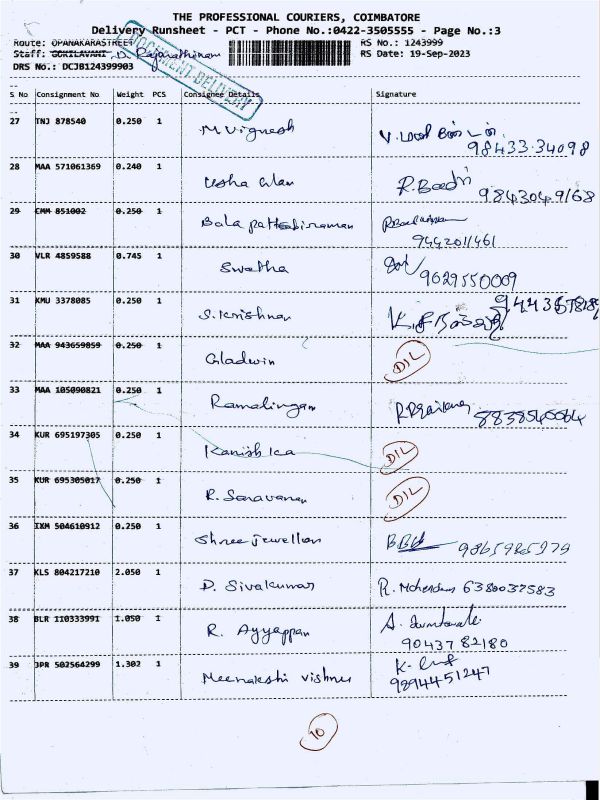 THE PROFESSIONAL COURIERS, COIMBATORE
Delivery Runsheet - PCT - Phone No.:0422-3505555 - Page No.:3
Route: OPANAKARASTREET RS No.: 1243999
Staff: GOKILAVANI D. RS Date: 19-Sep-2023
DRS No.: DCJB124399903
DOCUMENT DELIVERY
S No Consignment No Weight PCS Consignee Details Signature
27 TNJ 878540 0.250 1 M Vignesh
98433-34098
28 MAA 571061369 0.240 1 Usha R. Badri 9843049168
29 CMM 851002 0.250 1 Bala
9442011461
30 VLR 4859588 0.745 1 Swatha
9029550009
31 KMU 3378085 0.250 1 S. Krishnan
32 MAA 943659859 0.250 1 Gladwin DIL
33 MAA 105090821 0.250 1 Ramalingam
34 KUR 695197305 0.250 1 Kanishka DIL
35 KUR 695305017 0.250 1 R. Saravanan DIL
36 IXM 504610912 0.250 1 Shree Jewellers
37 KLS 804217210 2.050 1 D. Sivakumar R. 6380037583
38 BLR 110333991 1.050 1 R. Ayyappan A.
90437 82180
39 JPR 502564299 1.302 1 Meenakshi Vishnu K.
9894451247
10